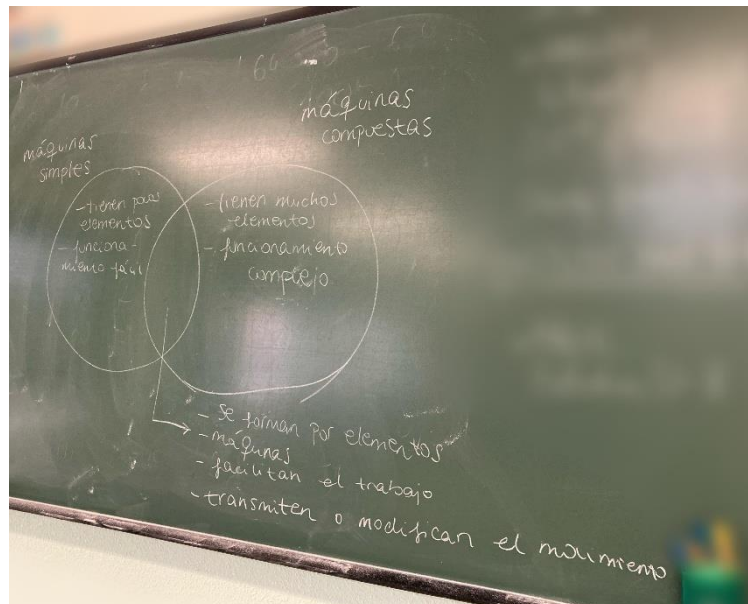 máquinas
simples
máquinas
compuestas
- tienen pocos
elementos
- funciona-
miento fácil
- tienen muchos
elementos
- funcionamiento
complejo
- Se forman por elementos
- máquinas
- facilitan el trabajo
- transmiten o modifican el movimiento